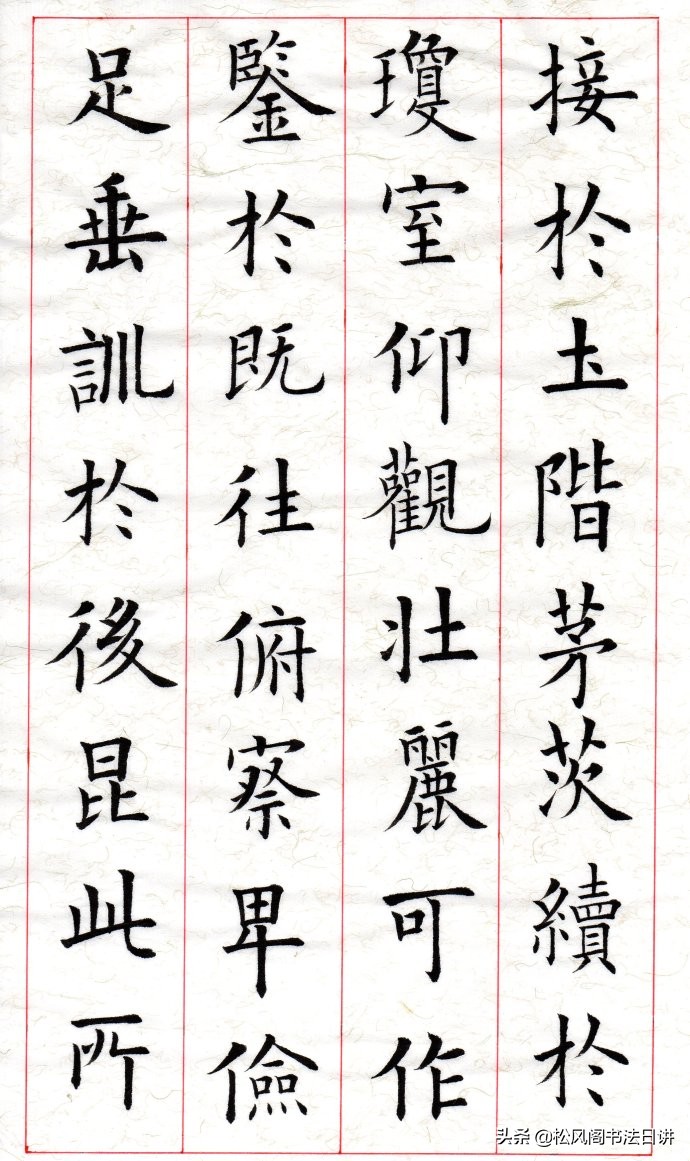 接於土階茅茨續於
瓊室仰觀壯麗可作
鑒於既往俯察卑儉
足垂訓於後昆此所
头条 @松风阁书法日讲